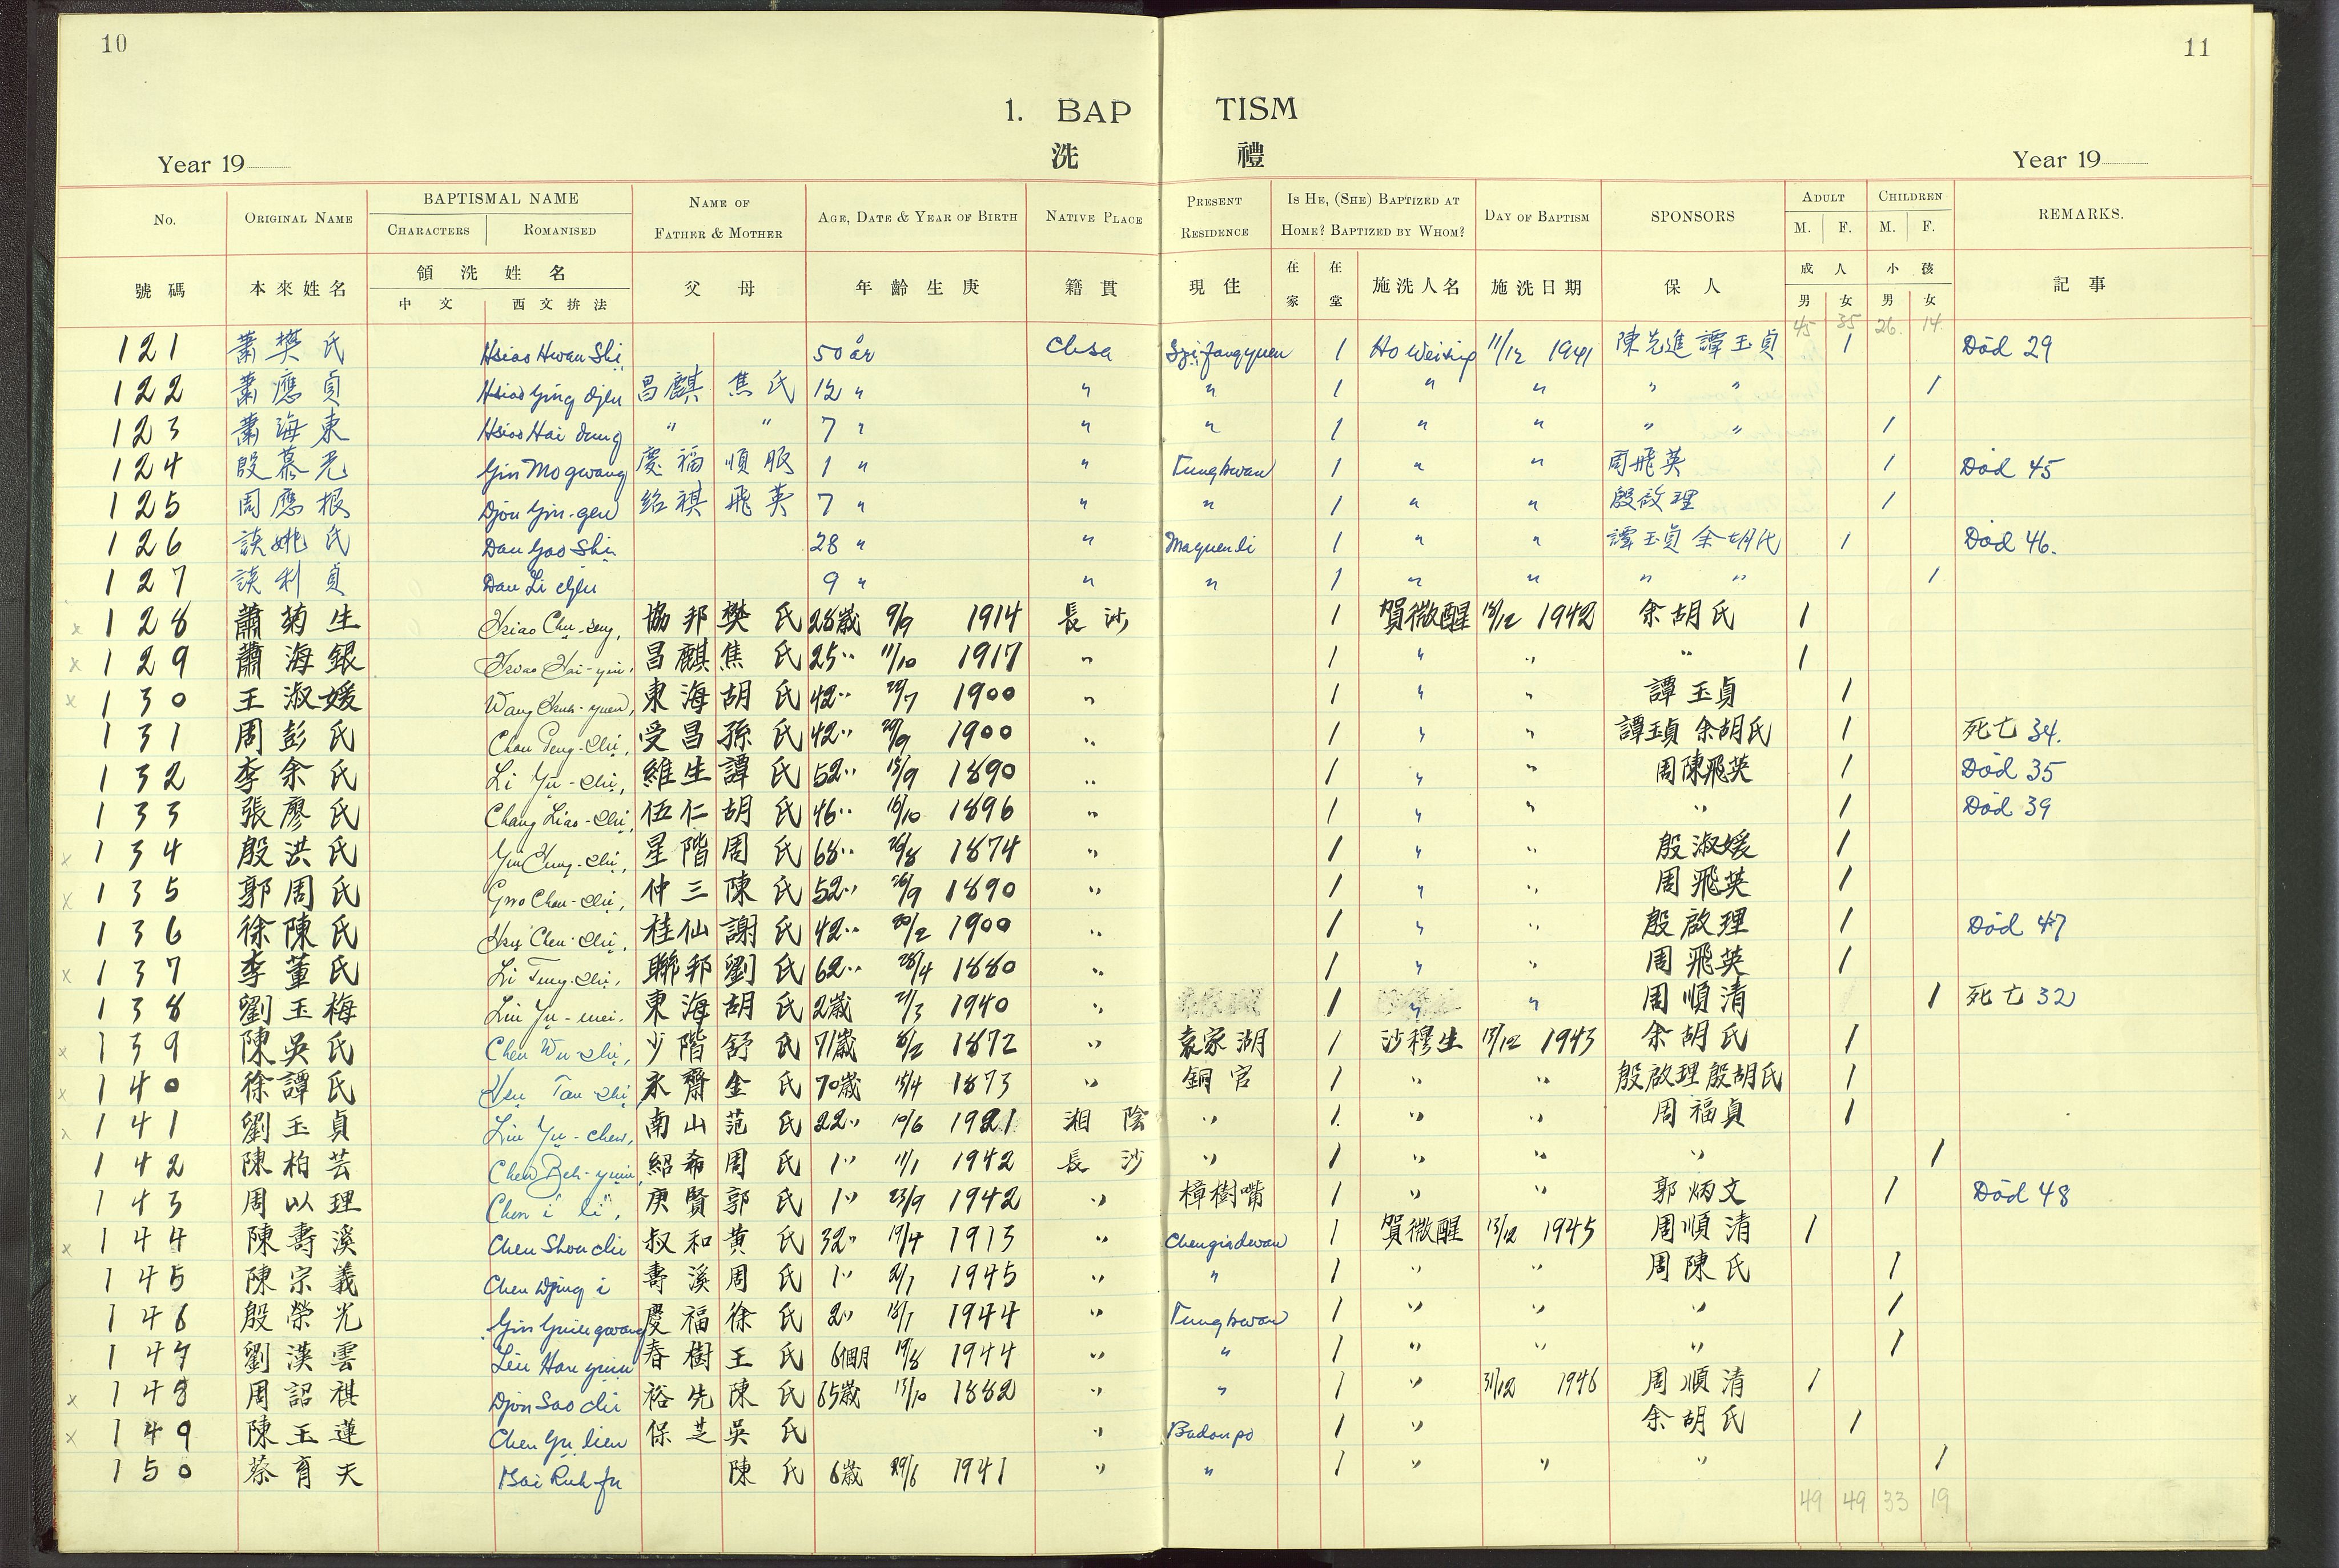 10
11
1. BAP TISM
洗 禮
Year 19 Year 19
No. ORIGINAL NAME BAPTISMAL NAME CHARACTERS ROMANISED NAME OF FATHER & MOTHER AGE, DATE & YEAR OF BIRTH NATIVE PLACE PRESENT RESIDENCE IS HE, (SHE) BAPTIZED AT HOME? BAPTIZED BY WHOM? DAY OF BAPTISM SPONSORS ADULT M. F. CHILDREN M. F. REMARKS.
號碼 本來姓名 領洗姓名 中文 西文拚法 父母 年齡生庚 籍貫 現住 在家 在堂 施洗人名 施洗日期 保人 成人 男 女 小孩 男 女 記事
45 35 26. 14.
121 蕭樊氏 Hsiao Hwan Shi 50 år Chsa 1 Ho Weising 11/12 1941 陳先進 譚玉貞 1 Död 29
122 蕭應貞 Hsiao Ying djen 昌麒 焦氏 12 " " " 1 " " " " 1
123 蕭海東 Hsiao Hai dung " " 7 " " " 1 " " " " 1
124 殷慕光 Yin Mo gwang 慶福 順服 1 " " Tungkwan 1 " " 周飛英 1 Död 45
125 周應根 Djou Yin-gen 紹祺 飛英 7 " " " 1 " " 殷啟理 1
126 談姚氏 Dan Yao Shi 28 " " Mayuenli 1 " " 譚玉貞 余胡氏 1 Död 46.
127 談利貞 Dan Li djen 9 " " " 1 " " " " 1
x 128 蕭菊生 Hsiao Chu-seng, 協邦 樊氏 28歲 9/9 1914 長沙 1 賀微醒 13/12 1942 余胡氏 1
x 129 蕭海銀 Hsiao Hai-yin, 昌麒 焦氏 25" 11/10 1917 " 1 " " " 1
x 130 王淑媛 東海 胡氏 42" 1900 " 1 " " 譚玉貞 1
131 周彭氏 Chou Peng-shi, 受昌 孫氏 42" 1900 " 1 " " 譚玉貞 余胡氏 1 死亡 34.
132 李余氏 Li Yü-shi, 維生 譚氏 52" 15/9 1890 " 1 " " 周陳飛英 1 Död 35
133 張廖氏 Chang Liao-shi, 伍仁 胡氏 46" 1896 " 1 " " " 1 Död 39
x 134 殷洪氏 Yin Hung-shi, 星階 周氏 68" 26/8 1874 " 1 " " 殷淑媛 1
x 135 郭周氏 Gwo Chou-shi, 仲三 陳氏 52" 26/9 1890 " 1 " " 周飛英 1
136 徐陳氏 Hsü Chen-shi, 桂仙 謝氏 42" 20/2 1900 " 1 " " 殷啟理 1 Död 47
x 137 李董氏 Li Tung-shi, 聯邦 劉氏 62" 28/4 1880 " 1 " " 周飛英 1
138 劉玉梅 Liu Yu-mei. 東海 胡氏 2歲 1940 " 1 " " 周順清 1 死亡 32
x 139 陳吳氏 Chen Wu-shi, 少階 舒氏 71歲 1872 " 袁家湖 1 沙穆生 13/12 1943 余胡氏 1
x 140 徐譚氏 Hsu Tan shi, 永齋 金氏 70歲 15/4 1873 " 銅官 1 " " 殷啟理 殷胡氏 1
x 141 劉玉貞 Liu Yu-chen, 南山 范氏 22" 10/6 1921 湘陰 " 1. " " 周福貞 1
142 陳柏芸 紹希 周氏 1" 11/1 1942 長沙 " 1 " " " 1
143 周以理 庚賢 郭氏 1" 23/9 1942 " 樟樹嘴 1 " " 郭炳文 1 Död 48
x 144 陳壽溪 Chen Shou chi 叔和 黃氏 32" 19/4 1913 " 1 賀微醒 13/12 1945 周順清 1
145 陳宗義 壽溪 周氏 1" 1945 " " 1 " " 周陳氏 1
146 殷榮光 慶福 徐氏 2" 1944 " Tungkwan 1 " " " 1
147 劉漢雲 Liu Han yuin 春樹 王氏 6個月 19/8 1944 " " 1 " " " 1
x 148 周詔祺 Djou Sao chi 裕先 陳氏 65歲 13/10 1882 " " 1 " 31/12 1946 周順清 1
x 149 陳玉蓮 Chen Yu lien 保芝 吳氏 " Badoupo 1 " 余胡氏 1
150 蔡育夫 陳氏 6歲 29/6 1941 " " 1 " " " 1
49 49 33 19